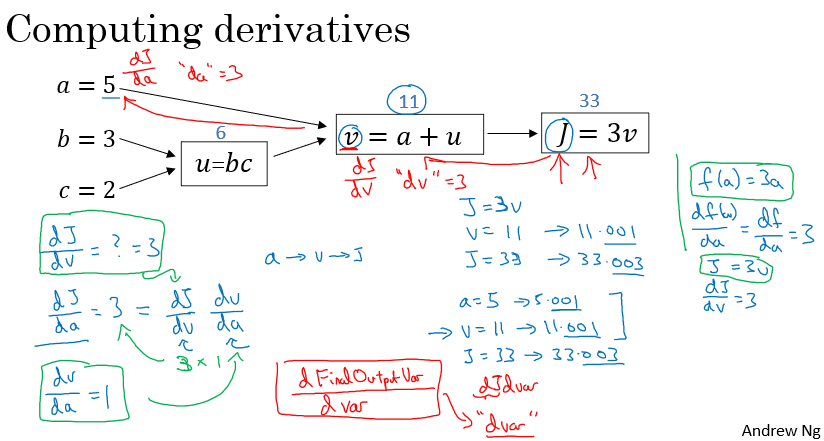 Computing derivatives
a = 5
dJ/da "da" = 3
b = 3
c = 2
6
u=bc
11
v = a + u
dJ/dv "dv" = 3
33
J = 3v
dJ/dv = ? = 3
a → v → J
dJ/da = 3 = dJ/dv dv/da
3 × 1
dv/da = 1
J = 3v
v = 11 → 11.001
J = 33 → 33.003
a = 5 → 5.001
→ v = 11 → 11.001
J = 33 → 33.003
d FinalOutputVar / d var
dJdvar
"dvar"
f(a) = 3a
df(a)/da = df/da = 3
J = 3v
dJ/dv = 3
Andrew Ng